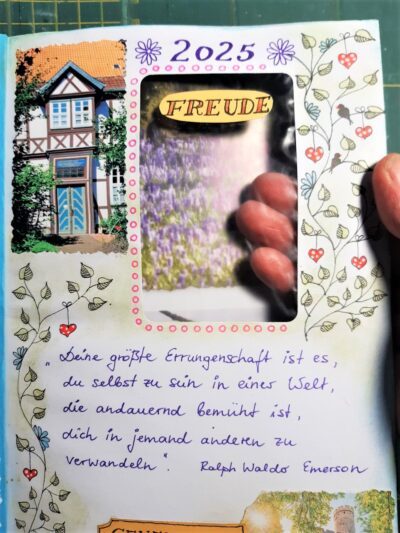 2025
FREUDE
„Deine größte Errungenschaft ist es,
du selbst zu sein in einer Welt,
die andauernd bemüht ist,
dich in jemand anderen zu
verwandeln". Ralph Waldo Emerson